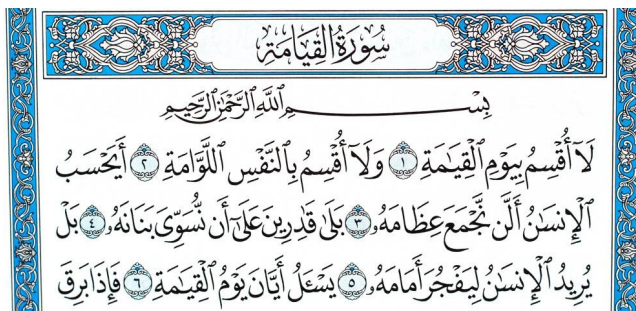 سُورَةُ القِيَامَةِ
بِسْمِ اللَّهِ الرَّحْمَٰنِ الرَّحِيمِ
لَآ أُقْسِمُ بِيَوْمِ ٱلْقِيَٰمَةِ ١ وَلَآ أُقْسِمُ بِٱلنَّفْسِ ٱللَّوَّامَةِ ٢ أَيَحْسَبُ
ٱلْإِنسَٰنُ أَلَّن نَّجْمَعَ عِظَامَهُۥ ٣ بَلَىٰ قَٰدِرِينَ عَلَىٰٓ أَن نُّسَوِّىَ بَنَانَهُۥ ٤ بَلْ
يُرِيدُ ٱلْإِنسَٰنُ لِيَفْجُرَ أَمَامَهُۥ ٥ يَسْـَٔلُ أَيَّانَ يَوْمُ ٱلْقِيَٰمَةِ ٦ فَإِذَا بَرِقَ